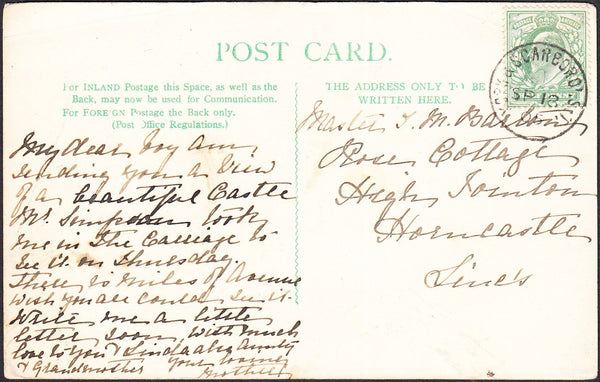 POST CARD.
For INLAND Postage this Space, as well as the
Back, may now be used for Communication.
For FOREIGN Postage the Back only.
(Post Office Regulations.)
My dear Boy am
sending you a View
of a beautiful Castle
Mr. Simpson took
me in The Carriage to
See it on Thursday
There is Miles of Avenue
wish you all could See it.
Write me a little
letter Soon, with much
love to You & Linda also Aunty
& Grandmother Your loving
Mother
THE ADDRESS ONLY TO BE
WRITTEN HERE.
Master T. M.
Rose Cottage
High Tointon
Horncastle
Linc's
SCARBORO
SP 13